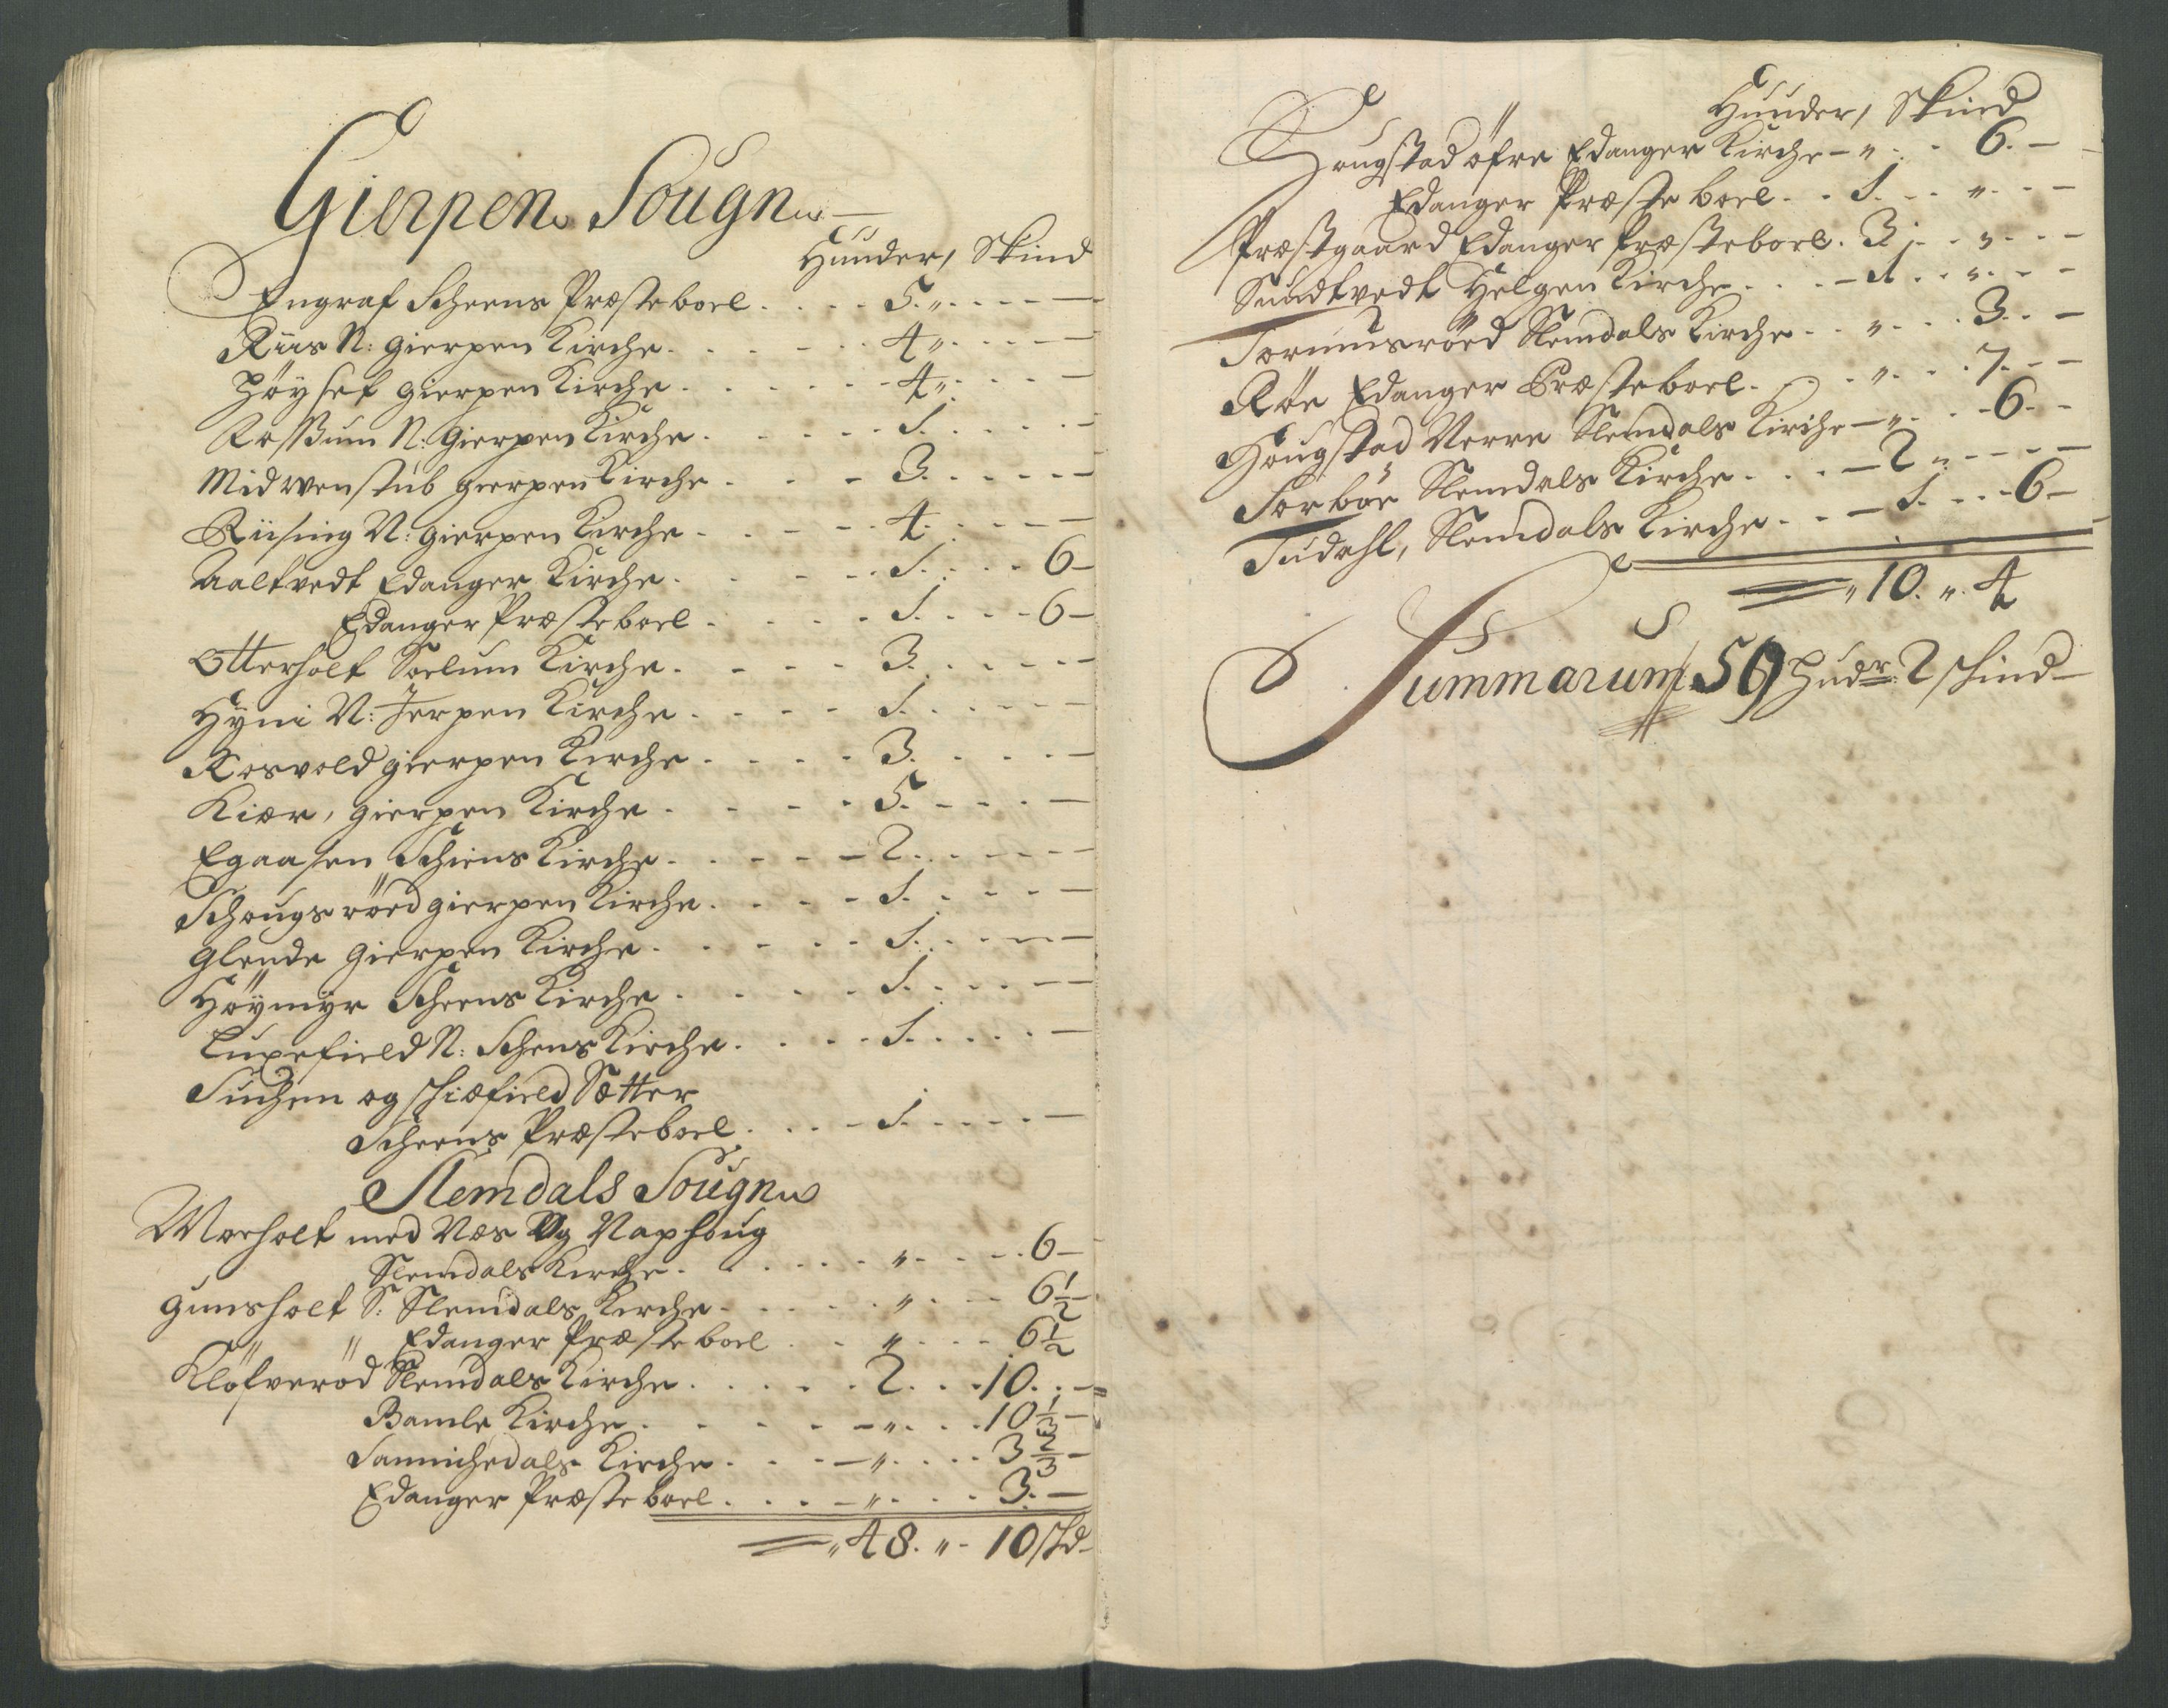 Gierpens Sougn
Huuder, Skind
Engraf Scheens Præsteboel . . . . 5 „ . . . . —
Riis N: Gierpen Kirche . . . . . . 4 „ . . . —
Höyset gierpen Kirche . . . . . . 4 „ . . . —
Rossum N: Gierpen Kirche . . . . . 1 . . . . —
Midvenstub gierpen Kirche . . . 3 . . . . . —
Riising N: gierpen Kirche . . . . 4 . . . . —
Aaltvedt Edanger Kirche . . . . . 1 . . . . 6 —
Edanger Præsteboel . . . . 1 . . . . 6 —
Otterholt Soelum Kirche . . . . 3 . . . . . —
Hyni N: Jerpen Kirche . . . . 1 . . . . . —
Rosvold gierpen Kirche . . . . 3 . . . . —
Kiær, gierpen Kirche . . . . 5 . . . . —
Egaasen Schiens Kirche . . . . — 2 . . . . . —
Schougsröed gierpen Kirche . . . . 1 . . . . —
Glende Gierpen Kirche . . . . . 1 . . . . —
Höymyr Scheens Kirche . . . . . 1 . . . . —
Luxefield N: Schens Kirche . . . . 1 . . . . . —
og schiæfield Sætter
Scheens Præsteboel . . . . 1 . . . . . —
Slemdals Sougn
Morholt med Næs Og Naphoug
Slemdals Kirche . . . . . . „ . . . . 6 —
Gunsholt S: Slemdals Kirche . . . . . „ . . . 6 1/2 —
„ „ Edanger Præsteboel . . „ . . . . 6 1/2
Klöfveröd Slemdals Kirche . . . . . 2 . . . 10 . . —
Bamle Kirche . . . . — „ . . . 10 1/3 —
Sannichedals Kirche . . . — „ . . . . 3 2/3 —
Edanger Præsteboel . . . — „ . . . . 3 . —
„ 48 . „ - 10 skd —
Huuder, Skind
Hougstad öfre Edanger Kirche — „ . . 6 . —
Edanger Præsteboel . . 1 . . . „ . . —
Præstgaard Edanger Præsteboel . 3 . . . „ . . —
Sundtvedt Helgen Kirche . . . — 1 . . „ . . —
Slemdals Kirche . . „ . . . 3 . . —
Röe Edanger Præsteboel . . . . „ . . . 7 . . —
Hougstad Nerre Slemdals Kirche — „ . . . 6 . .
Torböe Slemdals Kirche . . . — 2 „ . . . —
Tudahl, Slemdals Kirche . . . — 1 . . . 6 —
„ 10 . „ . 4
Summarum 59 Hudr: 2 skind —